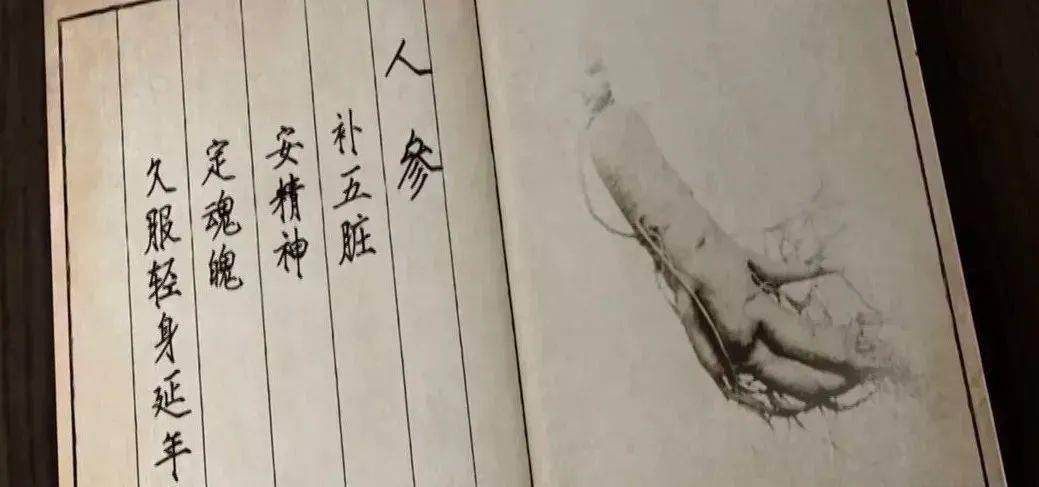 人參
补五脏
安精神
定魂魄
久服轻身延年